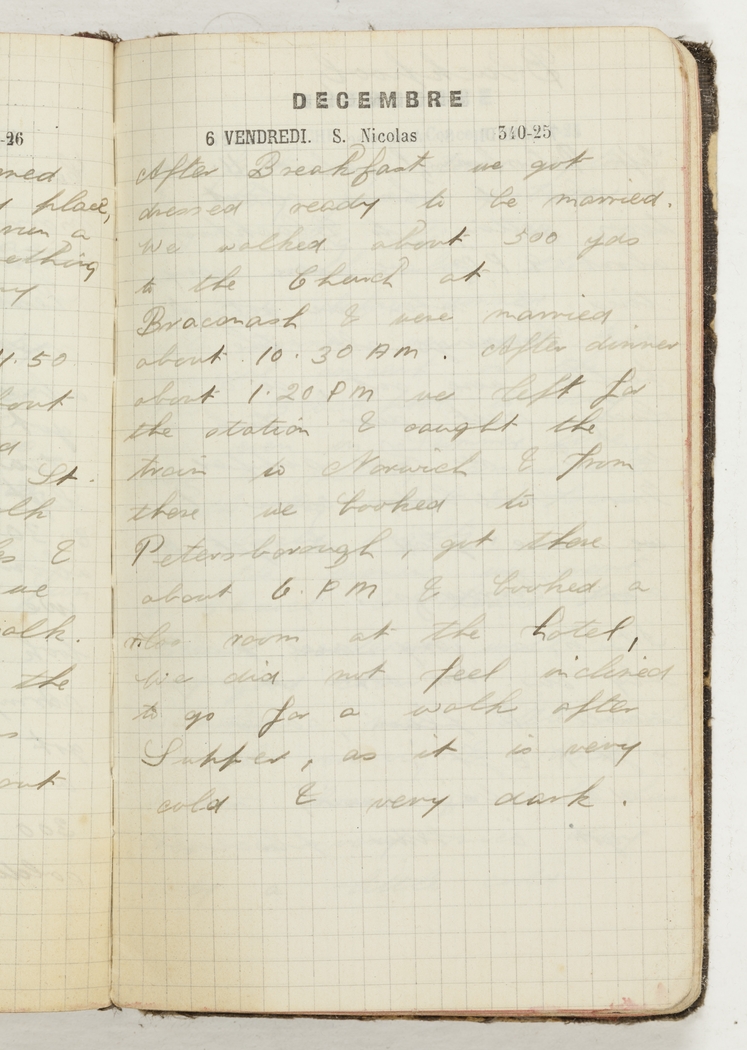 -26
ned
place,
run a
ething
y
4.50
bout
d
St.
lk
s &
we
alk.
the
s
out
DECEMBRE
6 VENDREDI. S. Nicolas 340-25
After Breakfast we got
dressed ready to be married.
We walked about 500 yds
to the Church at
Braconash & were married
about 10.30 AM. After dinner
about 1.20 PM we left for
the station & caught the
train to Norwich & from
there we booked to
Petersborough, got there
about 6. PM & booked a
room at the hotel,
We did not feel inclined
to go for a walk after
Supper, as it is very
cold & very dark.